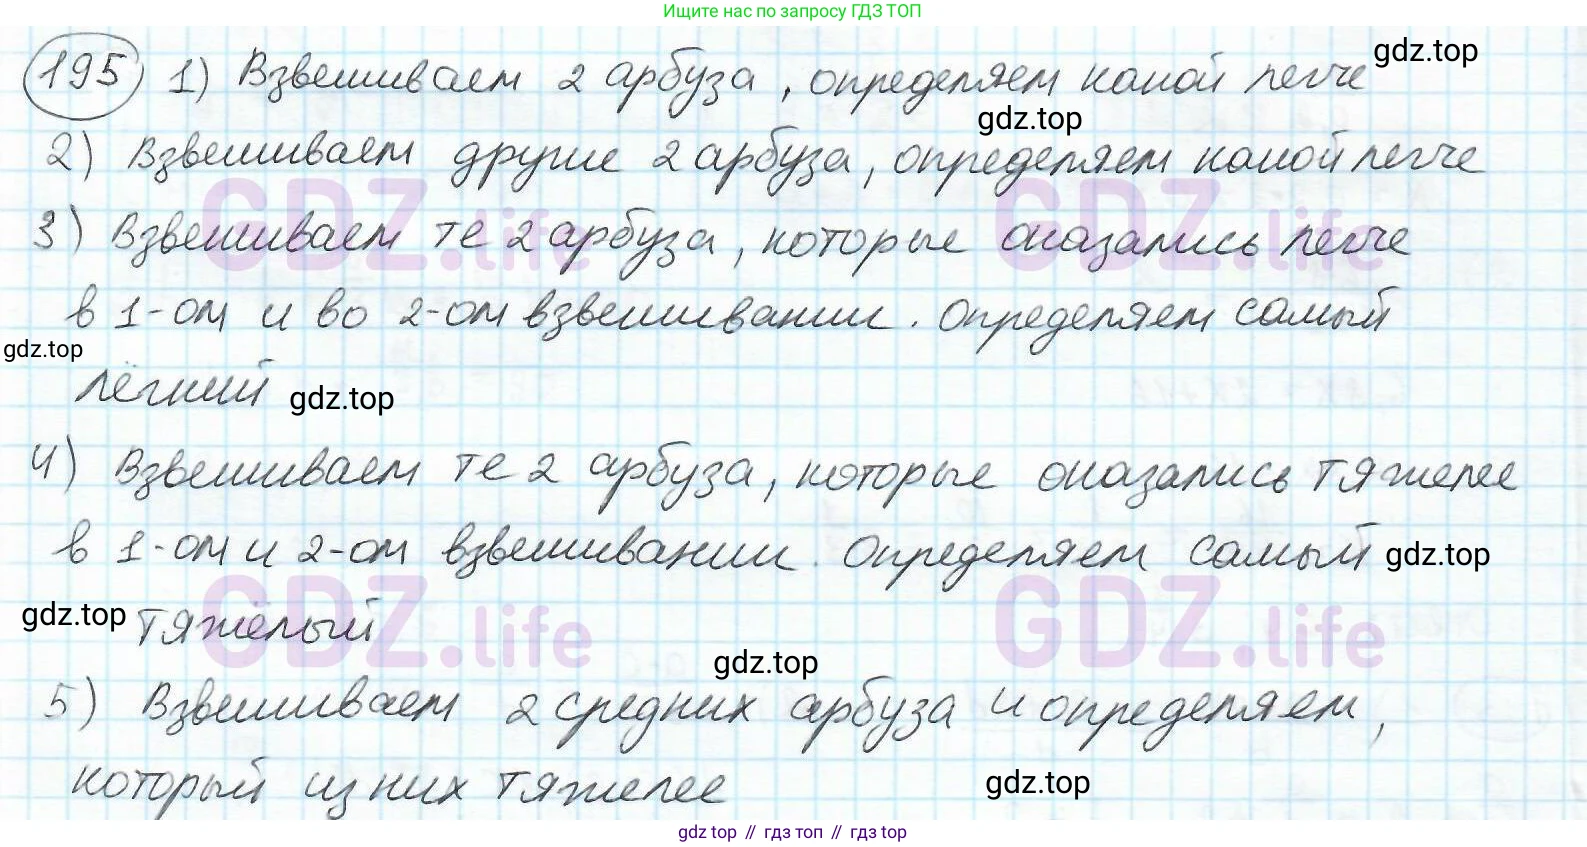 Ищите нас по запросу ГДЗ ТОП
195 1) Взвешиваем 2 арбуза, определяем какой легче
gdz.top
gdz.top
2) Взвешиваем другие 2 арбуза, определяем какой легче
GDZ.life GDZ.life
3) Взвешиваем те 2 арбуза, которые оказались легче
в 1-ом и во 2-ом взвешивании. Определяем самый
gdz.top
лёгкий gdz.top
4) Взвешиваем те 2 арбуза, которые оказались тяжелее
в 1-ом и 2-ом взвешивании. Определяем самый gdz.top
GDZ.life GDZ.life
gdz.top тяжёлый
gdz.top
5) Взвешиваем 2 средних арбуза и определяем,
который из них тяжелее gdz.top
gdz top // гдз топ // gdz top